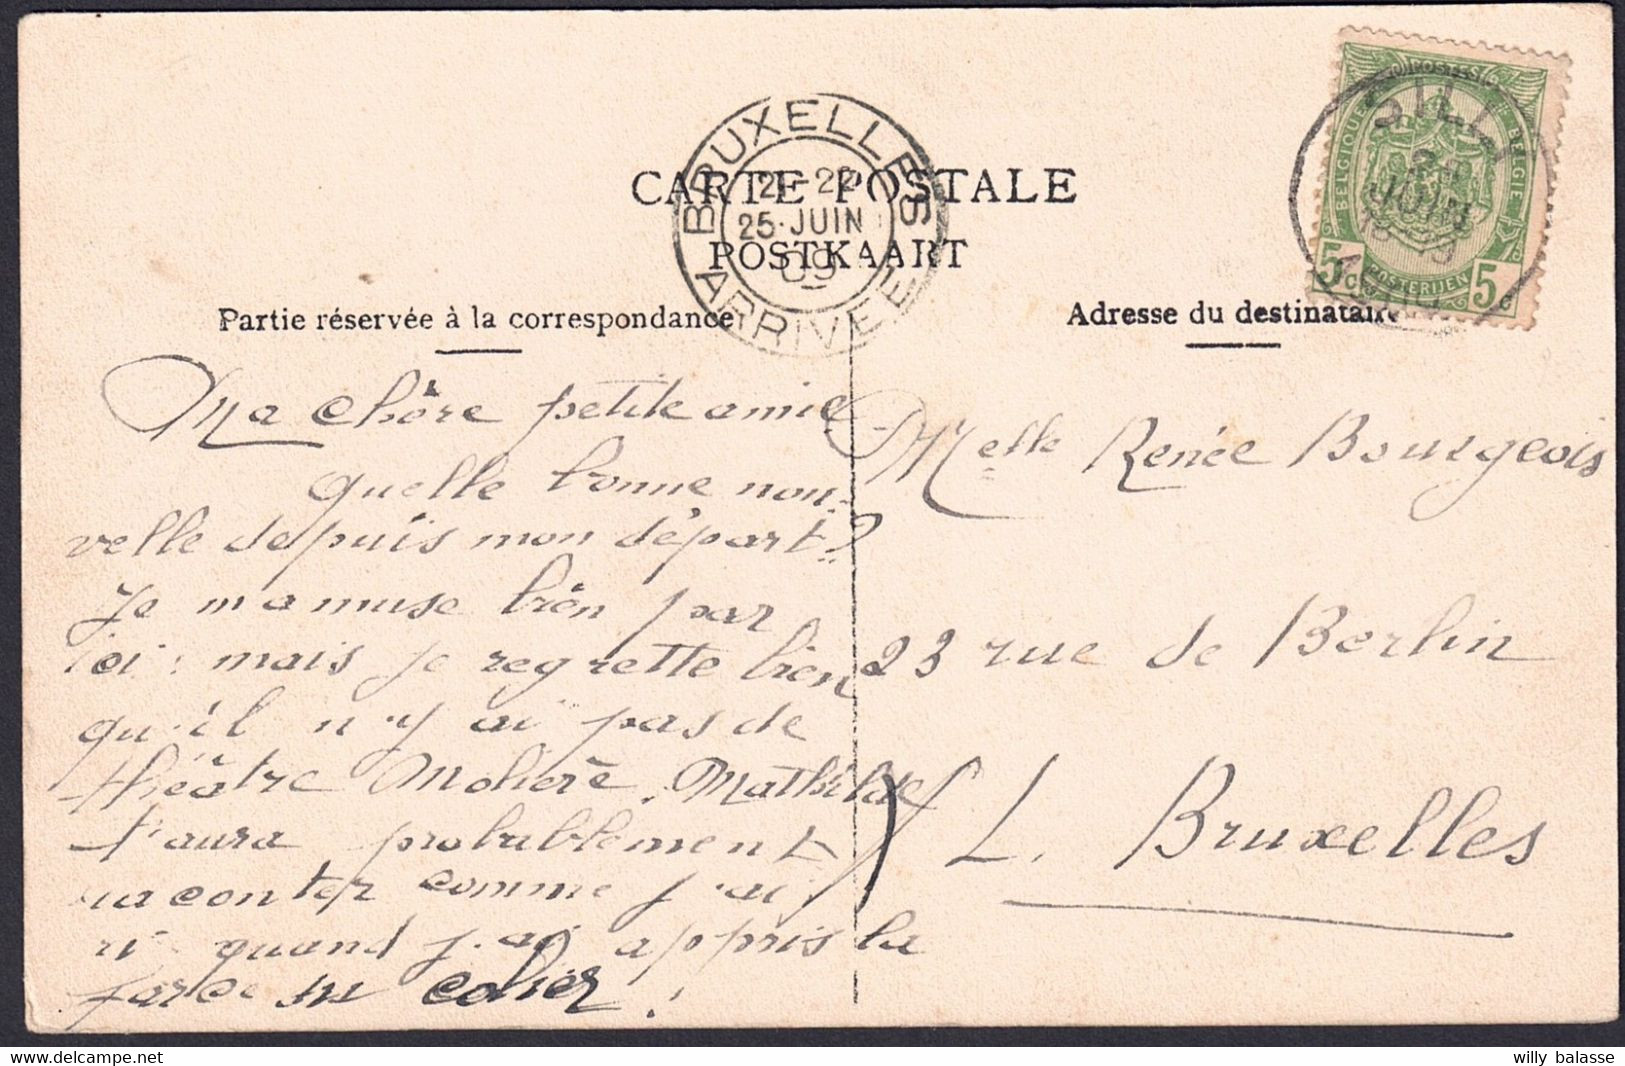 BRUXELLES
21-22
25·JUIN
09
ARRIVEE
CARTE POSTALE
POSTKAART
SILLY
JUIN
POSTES
BELGIQUE
BELGIE
5c
POSTERIJEN
5c
Partie réservée à la correspondance
Adresse du destinataire
Ma chère petite amie
quelle bonne nou-
velle depuis mon départ?
Je m'amuse bien par
ici; mais je regrette bien
qu'il n'y ai pas de
théâtre Molière. Mathilde
t'aura probablement
raconter comme j'ai
ri quand j'ai appris la
farce
Melle Renée Bourgeois
23 rue de Berlin
L. Bruxelles
willy balasse